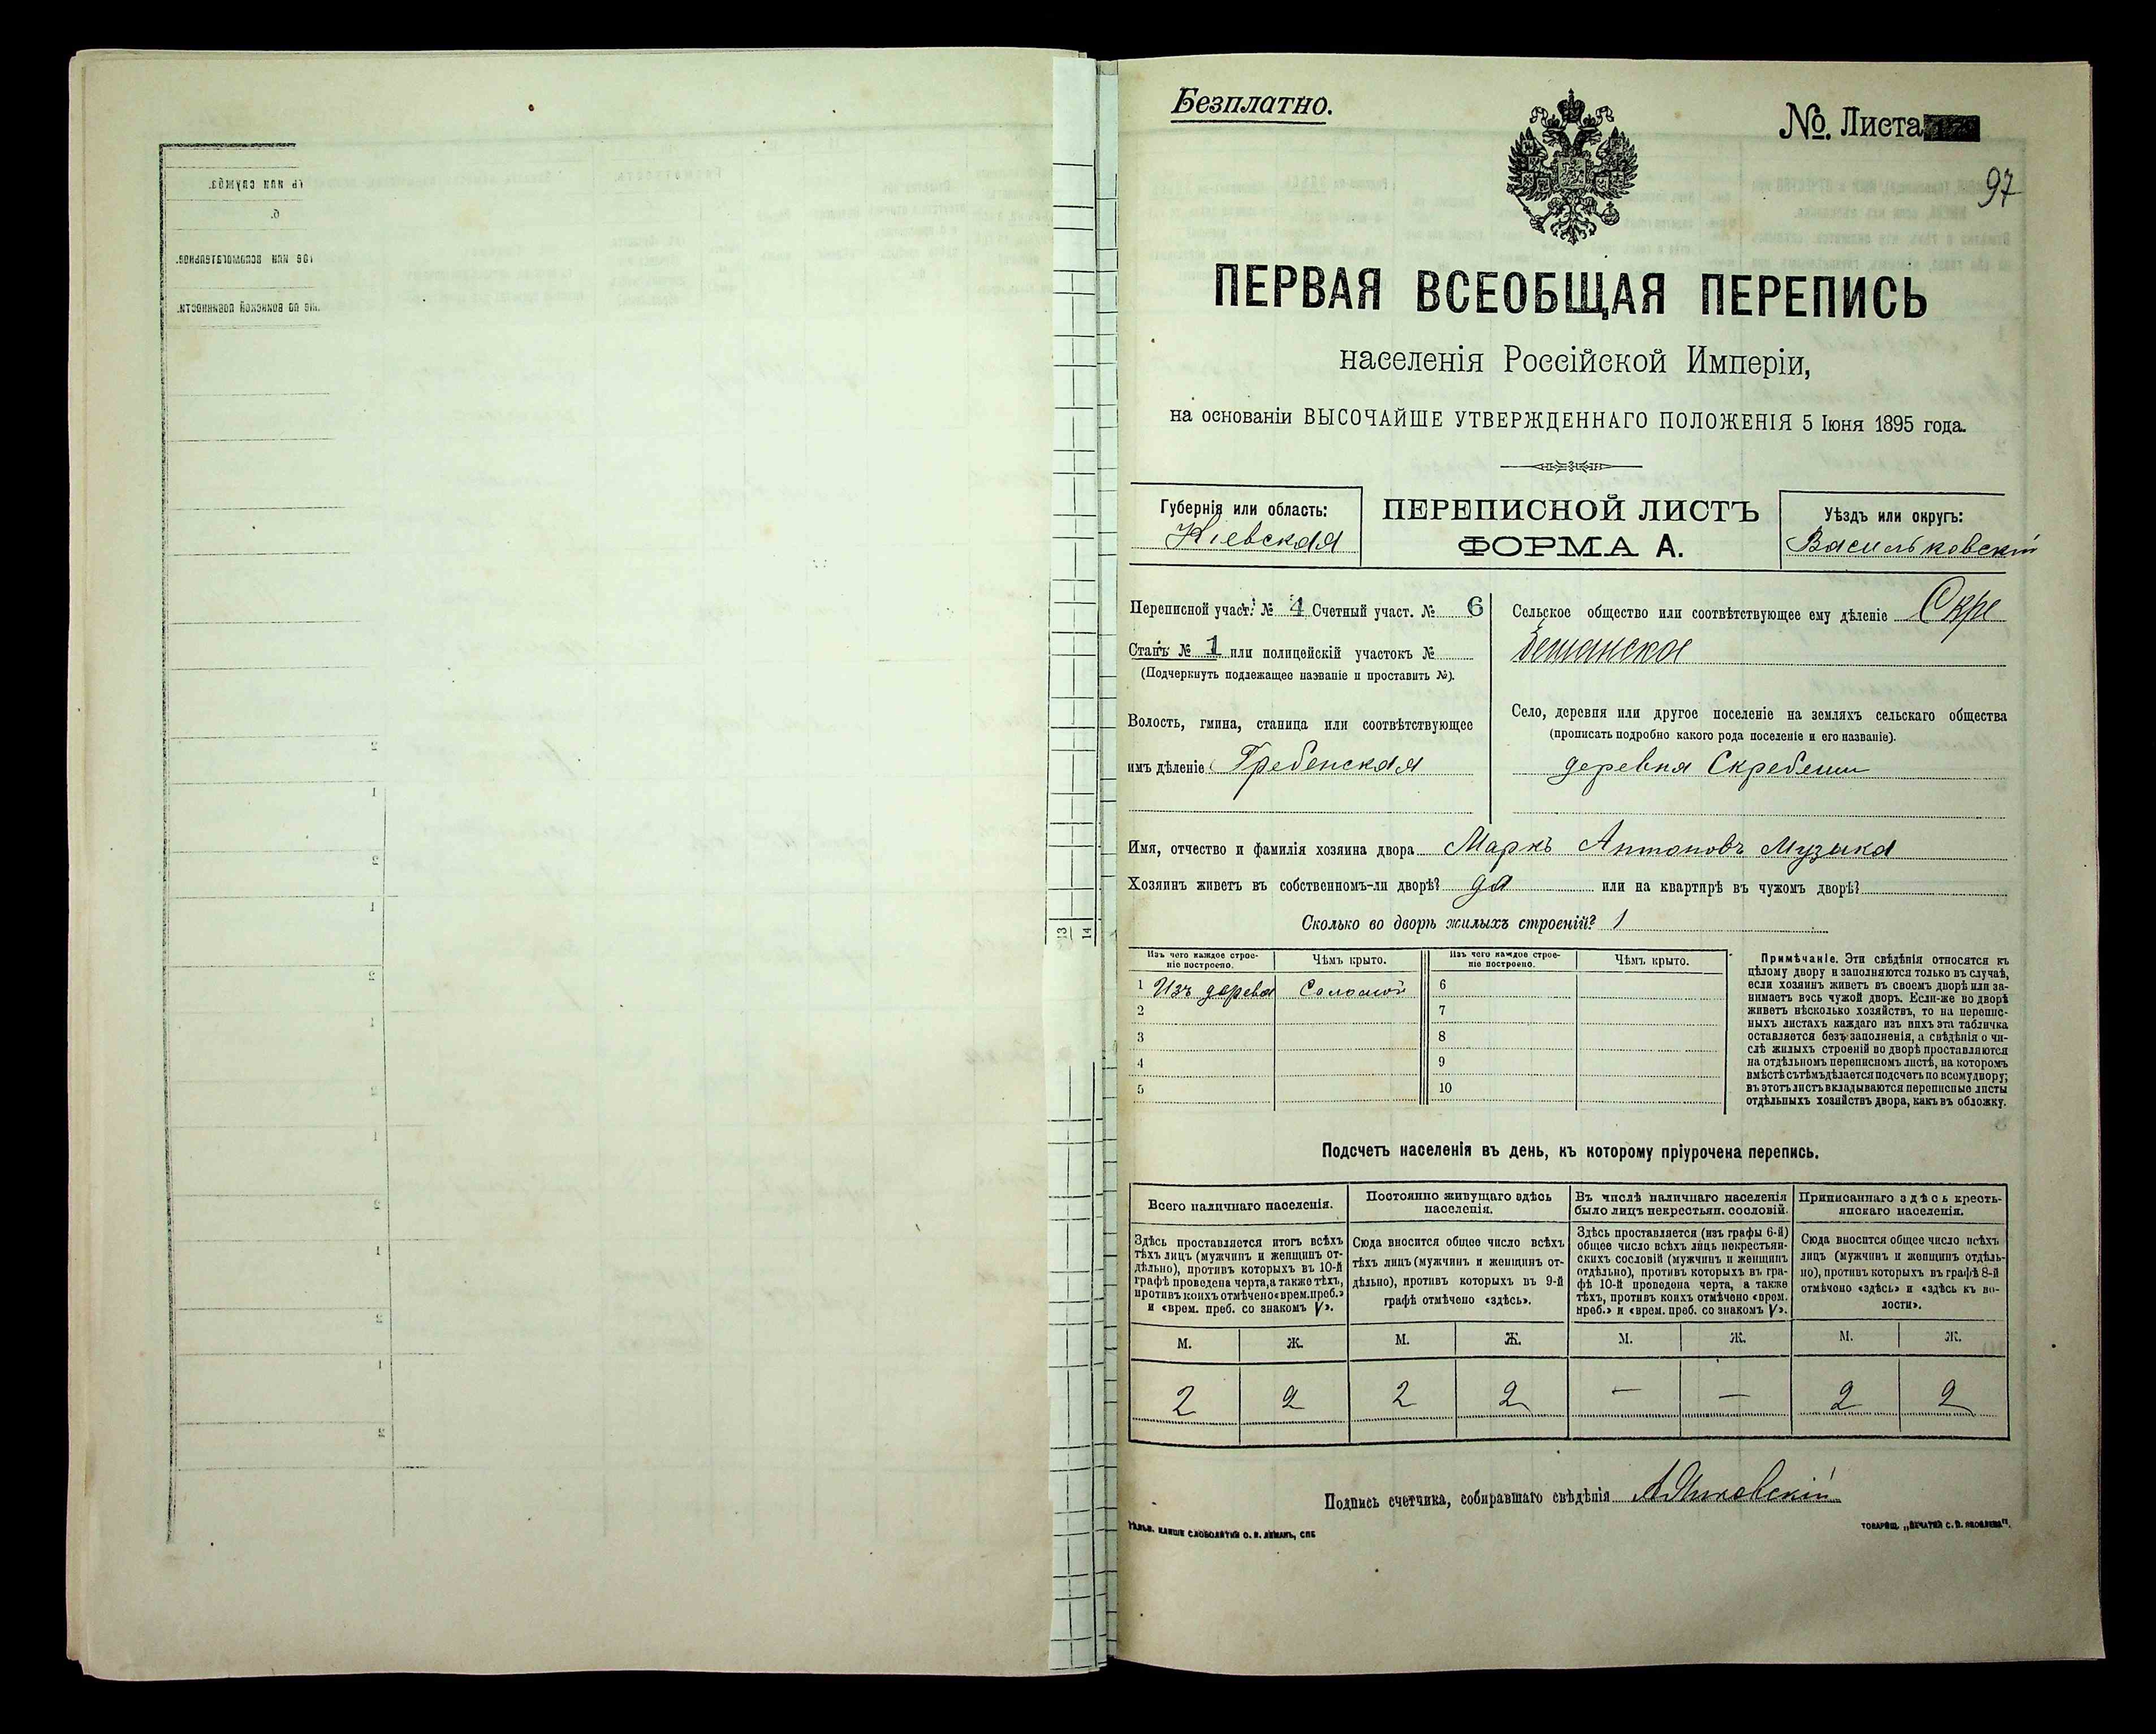 Безплатно.
№. Листа
97
ПЕРВАЯ ВСЕОБЩАЯ ПЕРЕПИСЬ
населенія Россійской Имперіи,
на основаніи ВЫСОЧАЙШЕ УТВЕРЖДЕННАГО ПОЛОЖЕНІЯ 5 Іюня 1895 года.
Губернія или область:
Кіевская
ПЕРЕПИСНОЙ ЛИСТЪ
ФОРМА А.
Уѣздъ или округъ:
Васильковскій
Переписной участ. № 4 Счетный участ. № 6
Станъ № 1 или полицейскій участокъ №
(Подчеркнуть подлежащее названіе и проставить №).
Волость, гмина, станица или соотвѣтствующее
имъ дѣленіе Гребенская
Сельское общество или соотвѣтствующее ему дѣленіе Скре
бешанское
Село, деревня или другое поселеніе на земляхъ сельскаго общества
(прописать подробно какого рода поселеніе и его названіе).
деревня Скребеши
Имя, отчество и фамилія хозяина двора Маркъ Антоновъ Музыка
Хозяинъ живетъ въ собственномъ-ли дворѣ? да или на квартирѣ въ чужомъ дворѣ?
Сколько во дворѣ жилыхъ строеній? 1
Изъ чего каждое строе-
ніе построено.
Чѣмъ крыто.
Изъ чего каждое строе-
ніе построено.
Чѣмъ крыто.
1 Изъ дерева Соломой 6
2 7
3 8
4 9
5 10
Примѣчаніе. Эти свѣдѣнія относятся къ
цѣлому двору и заполняются только въ случаѣ,
если хозяинъ живетъ въ своемъ дворѣ или за-
нимаетъ весь чужой дворъ. Если-же во дворѣ
живетъ нѣсколько хозяйствъ, то на перепис-
ныхъ листахъ каждаго изъ нихъ эта табличка
оставляется безъ заполненія, а свѣдѣнія о чи-
слѣ жилыхъ строеній во дворѣ проставляются
на отдѣльномъ переписномъ листѣ, на которомъ
вмѣстѣ съ тѣмъ дѣлается подсчетъ по всему двору;
въ этотъ листъ вкладываются переписные листы
отдѣльныхъ хозяйствъ двора, какъ въ обложку.
Подсчетъ населенія въ день, къ которому пріурочена перепись.
Всего наличнаго населенія.
Здѣсь проставляется итогъ всѣхъ
тѣхъ лицъ (мужчинъ и женщинъ от-
дѣльно), противъ которыхъ въ 10-й
графѣ проведена черта, а также тѣхъ,
противъ коихъ отмѣчено «врем. преб.»
и «врем. преб. со знакомъ V».
Постоянно живущаго здѣсь
населенія.
Сюда вносится общее число всѣхъ
тѣхъ лицъ (мужчинъ и женщинъ от-
дѣльно), противъ которыхъ въ 9-й
графѣ отмѣчено «здѣсь».
Въ числѣ наличнаго населенія
было лицъ некрестьян. сословій.
Здѣсь проставляется (изъ графы 6-й)
общее число всѣхъ лицъ некрестьян-
скихъ сословій (мужчинъ и женщинъ
отдѣльно), противъ которыхъ въ гра-
фѣ 10-й проведена черта, а также
тѣхъ, противъ коихъ отмѣчено «врем.
преб.» и «врем. преб. со знакомъ V».
Приписаннаго здѣсь кресть-
янскаго населенія.
Сюда вносится общее число всѣхъ
лицъ (мужчинъ и женщинъ отдѣль-
но), противъ которыхъ въ графѣ 8-й
отмѣчено «здѣсь» и «здѣсь къ во-
лости».
М. Ж. М. Ж. М. Ж. М. Ж.
2 2 2 2 — — 2 2
Подпись счетчика, собиравшаго свѣдѣнія
13
14